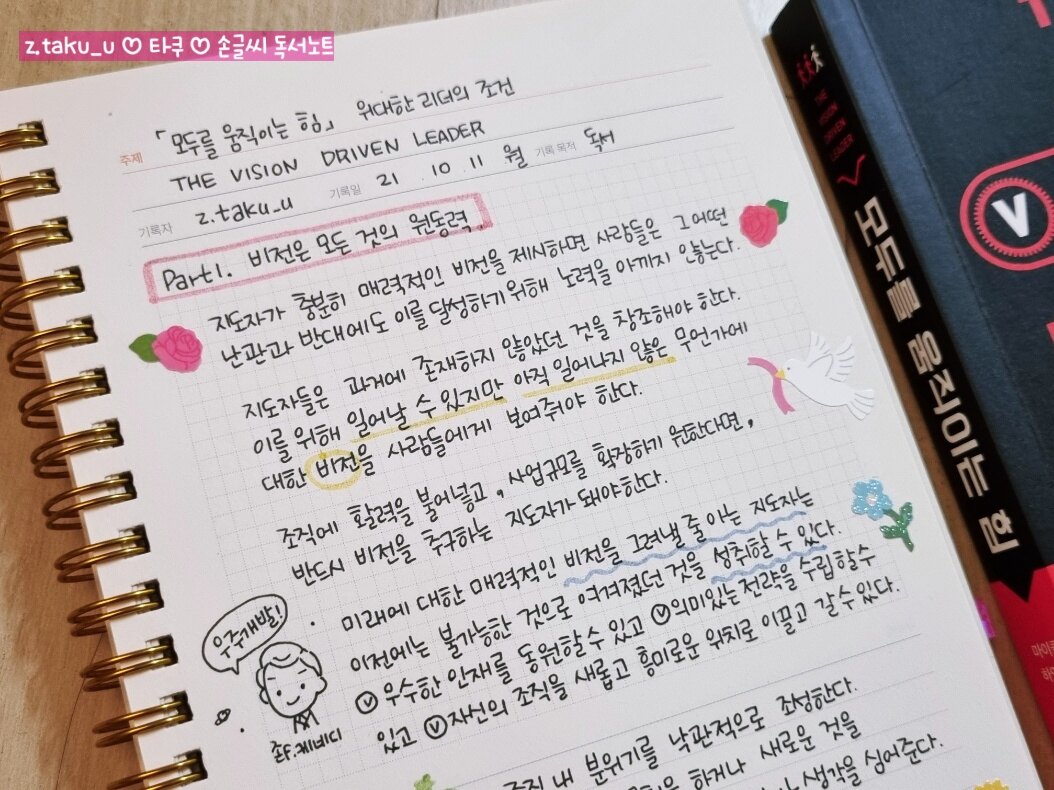 z.taku_u ♡ 타쿠 ♡ 손글씨 독서노트
주제 「모두를 움직이는 힘」 위대한 리더의 조건
THE VISION DRIVEN LEADER
기록자 z.taku_u 기록일 21 . 10 . 11 월 기록 목적 독서
Part1. 비전은 모든 것의 원동력.
지도자가 충분히 매력적인 비전을 제시하면 사람들은 그 어떤
난관과 반대에도 이를 달성하기 위해 노력을 아끼지 않는다.
지도자들은 과거에 존재하지 않았던 것을 창조해야 한다.
이를 위해 일어날 수 있지만 아직 일어나지 않은 무언가에
대한 비전을 사람들에게 보여줘야 한다.
조직에 활력을 불어넣고, 사업규모를 확장하기 원한다면,
반드시 비전을 추구하는 지도자가 돼야한다.
미래에 대한 매력적인 비전을 그려낼 줄 아는 지도자는
이전에는 불가능한 것으로 여겨졌던 것을 성취할 수 있다.
ⓥ 우수한 인재를 동원할 수 있고 ⓥ의미있는 전략을 수립할수
있고 ⓥ자신의 조직을 새롭고 흥미로운 위치로 이끌고 갈 수 있다.
우주개발!
존F.케네디
조직 내 분위기를 낙관적으로 조성한다.
하거나 새로운 것을
생각을 심어준다.
THE VISION DRIVEN LEADER
모두를 움직이는 힘
V